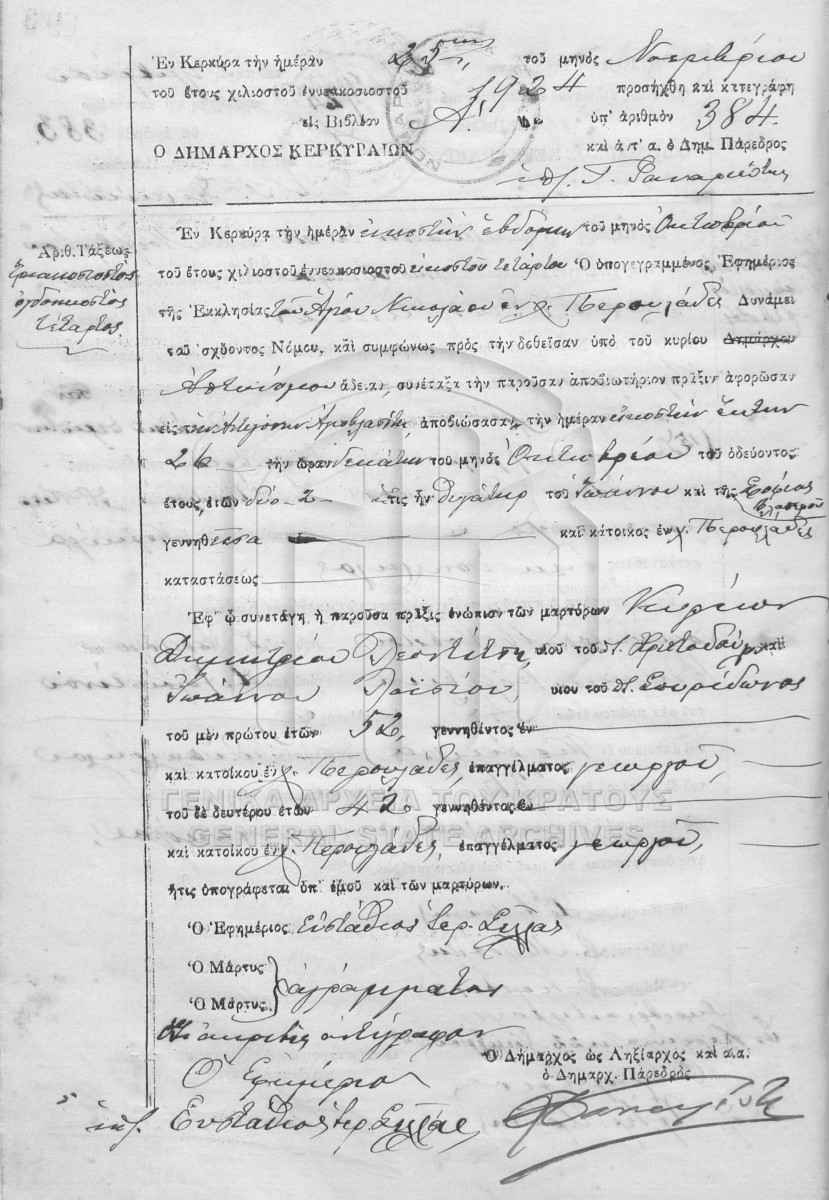 Ἐν Κερκύρᾳ τὴν ἡμέραν 25ην τοῦ μηνὸς Νοεμβρίου
τοῦ ἔτους χιλιοστοῦ ἐννεακοσιοστοῦ 1924 προσήχθη καὶ κατεγράφη
εἰς Βιβλίον Α. ὑπ' ἀριθμὸν 384.
Ο ΔΗΜΑΡΧΟΣ ΚΕΡΚΥΡΑΙΩΝ καὶ ἀ.τ'.α. ὁ Δημ. Πάρεδρος
ὑπ. Γ.
Ἀριθ. Τάξεως
τριακοσιοστὸς
ὀγδοηκοστὸς
τέταρτος
Ἐν Κερκύρᾳ τὴν ἡμέραν εἰκοστὴν ἑβδόμην τοῦ μηνὸς Ὀκτωβρίου
τοῦ ἔτους χιλιοστοῦ ἐννεακοσιοστοῦ εἰκοστοῦ τετάρτου Ὁ ὑπογεγραμμένος Ἐφημέριος
τῆς Ἐκκλησίας τοῦ Ἁγίου Νικολάου ἐν χ. Περουλάδες Δυνάμει
τοῦ ἰσχύοντος Νόμου, καὶ συμφώνως πρὸς τὴν δοθεῖσαν ὑπὸ τοῦ κυρίου Δημάρχου
Ἀστυνόμου ἄδειαν, συνέταξα τὴν παροῦσαν ἀποβιωτήριον πρᾶξιν ἀφορῶσαν
εἰς τὴν ἀποβιώσασαν, τὴν ἡμέραν εἰκοστὴν ἕκτην
26 τὴν ὥραν δεκάτην τοῦ μηνὸς Ὀκτωβρίου τοῦ ὁδεύοντος
ἔτους, ἐτῶν δύο - 2 - ἥτις ἦν θυγάτηρ τοῦ Ἰωάννου καὶ τῆς Σοφίας
γεννηθεῖσα καὶ κάτοικος ἐν χ. Περουλάδες
καταστάσεως
Ἐφ' ᾧ συνετάγη ἡ παροῦσα πρᾶξις ἐνώπιον τῶν μαρτύρων Κυρίων
Δημητρίου υἱοῦ τοῦ Χριστοδούλου καὶ
Ἰωάννου υἱοῦ τοῦ Σπυρίδωνος
τοῦ μὲν πρώτου ἐτῶν 52, γεννηθέντος ἐν
καὶ κατοίκου ἐν χ. Περουλάδες, ἐπαγγέλματος γεωργοῦ,
ΓΕΝΙΚΑ ΑΡΧΕΙΑ ΤΟΥ ΚΡΑΤΟΥΣ
τοῦ δὲ δευτέρου ἐτῶν 42 γεννηθέντος ἐν
GENERAL STATE ARCHIVES
καὶ κατοίκου ἐν χ. Περουλάδες, ἐπαγγέλματος γεωργοῦ,
ἥτις ὑπογράφεται ὑπ' ἐμοῦ καὶ τῶν μαρτύρων.
Ὁ Ἐφημέριος Εὐστάθιος Ἱερ.
Ὁ Μάρτυς
ἀγράμματοι
Ὁ Μάρτυς
ἀκριβὲς ἀντίγραφον
Ὁ Δήμαρχος ὡς Ληξίαρχος καὶ ἀ.α.
ὁ Δημαρχ. Πάρεδρος
Ὁ Ἐφημέριος
ὑπ. Εὐστάθιος Ἱερ.